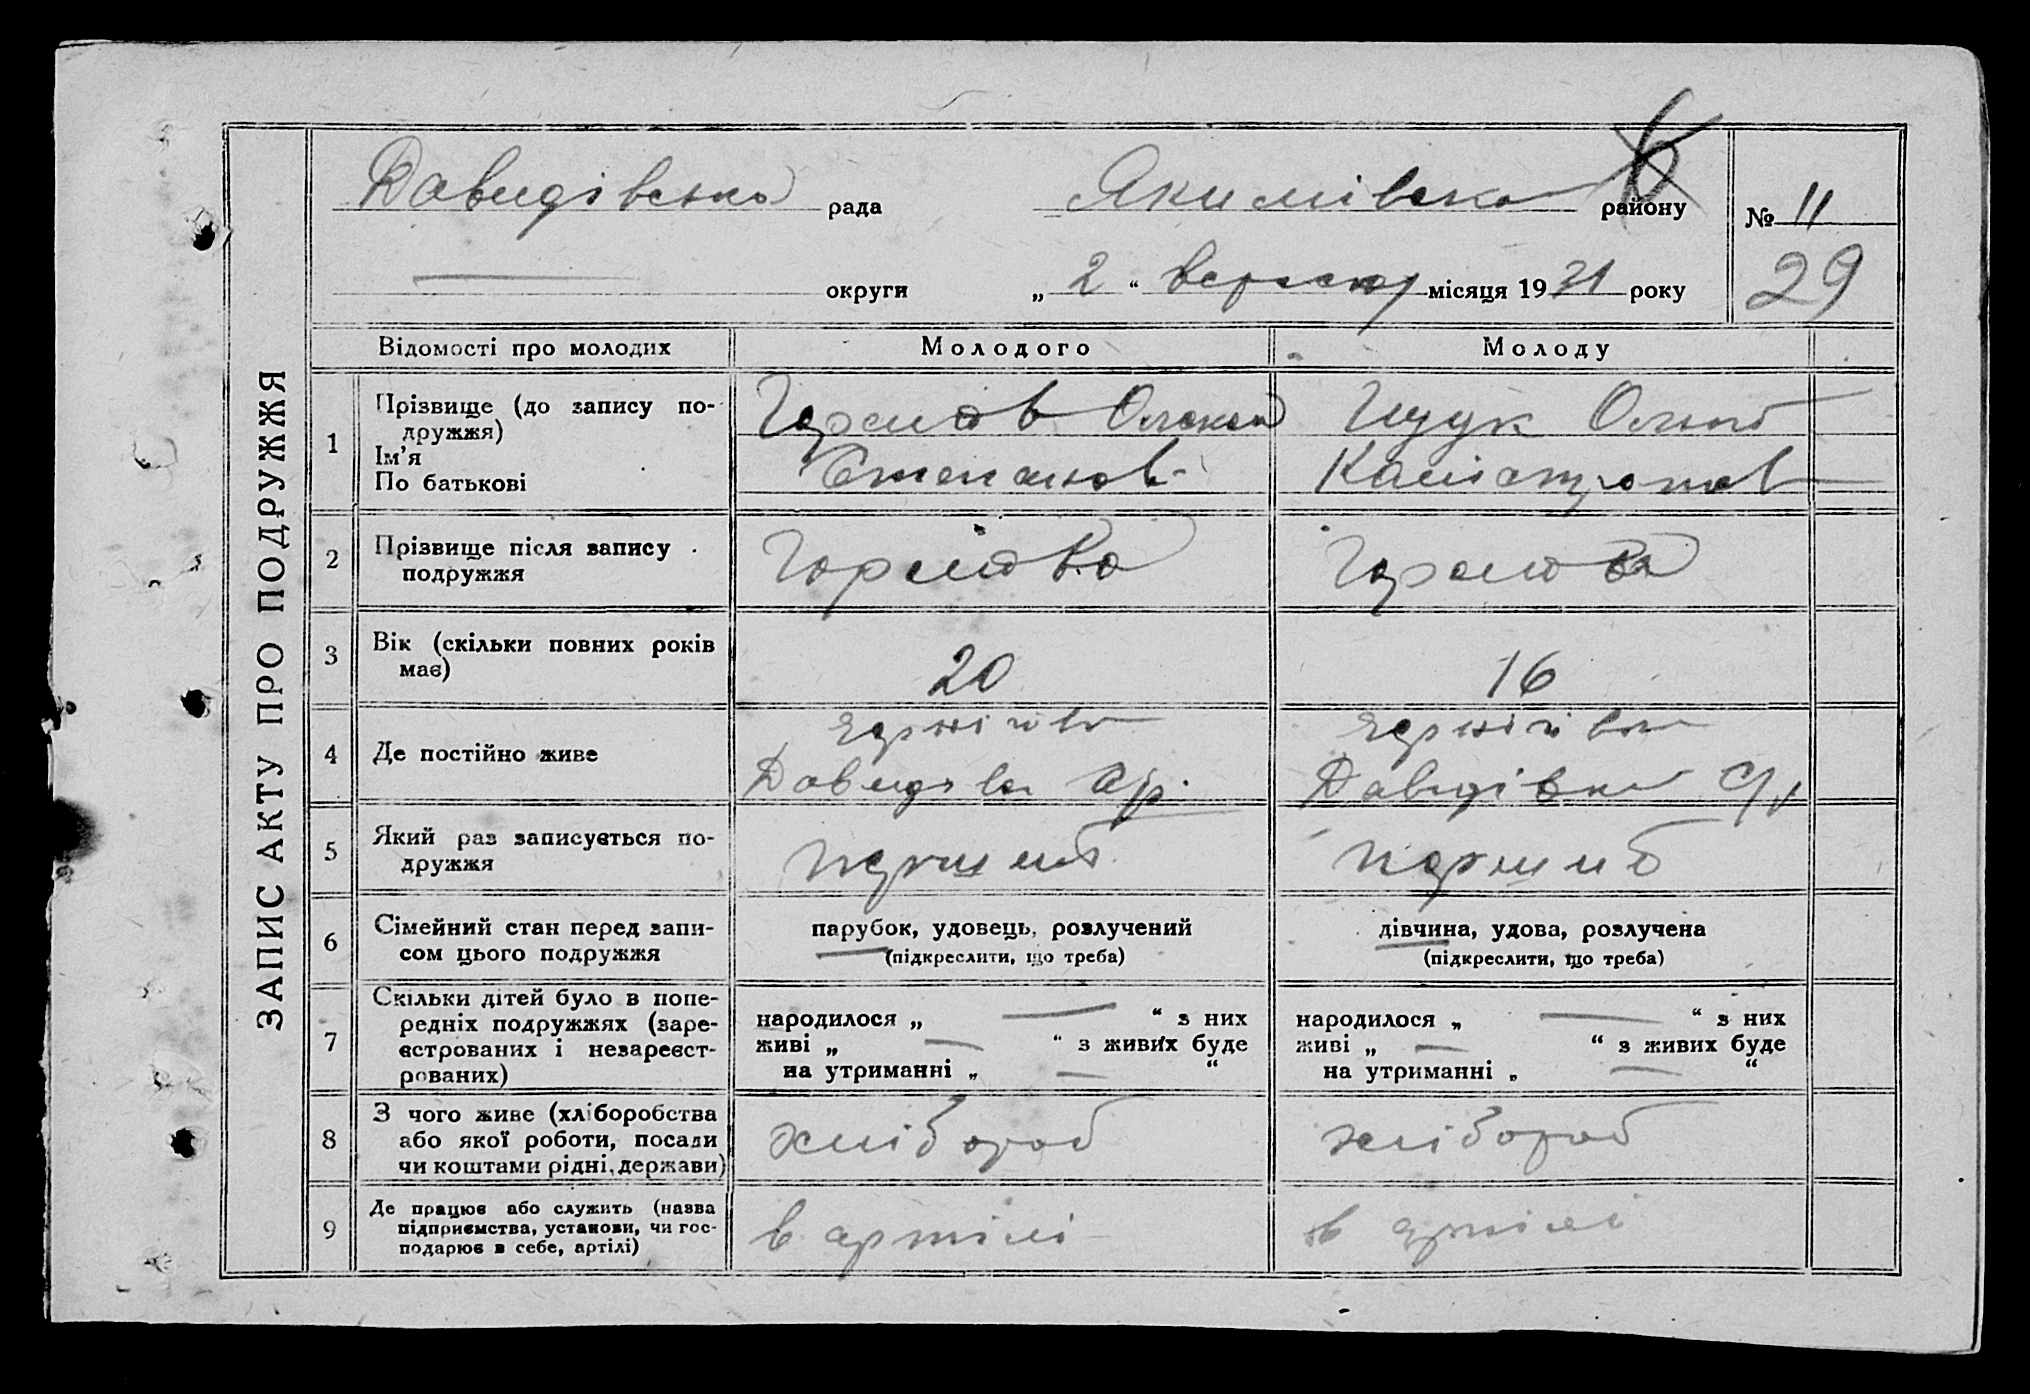 ЗАПИС АКТУ ПРО ПОДРУЖЖЯ
Давидівська рада Якимівсько району № 11
округи „ 2 “ вересня місяця 1931 року 29
Відомості про молодих Молодого Молоду
1 Прізвище (до запису по-
дружжя)
Ім’я
По батькові
Олексій
Степанов
2 Прізвище після запису
подружжя
3 Вік (скільки повних років
має)
20 16
4 Де постійно живе
Давидівка с/р.
Давидівка с/р
5 Який раз записується по-
дружжя
перший перший
6 Сімейний стан перед запи-
сом цього подружжя
парубок, удовець, розлучений
(підкреслити, що треба)
дівчина, удова, розлучена
(підкреслити, що треба)
7 Скільки дітей було в попе-
редніх подружжях (заре-
єстрованих і незареєст-
рованих)
народилося „ — “ з них
живі „ — “ з живих буде
на утриманні „ — “
народилося „ — “ з них
живі „ — “ з живих буде
на утриманні „ — “
8 З чого живе (хліборобства
або якої роботи, посади
чи коштами рідні, держави)
хлібороб хлібороб
9 Де працює або служить (назва
підприємства, установи, чи гос-
подарює в себе, артілі)
в артілі в артілі